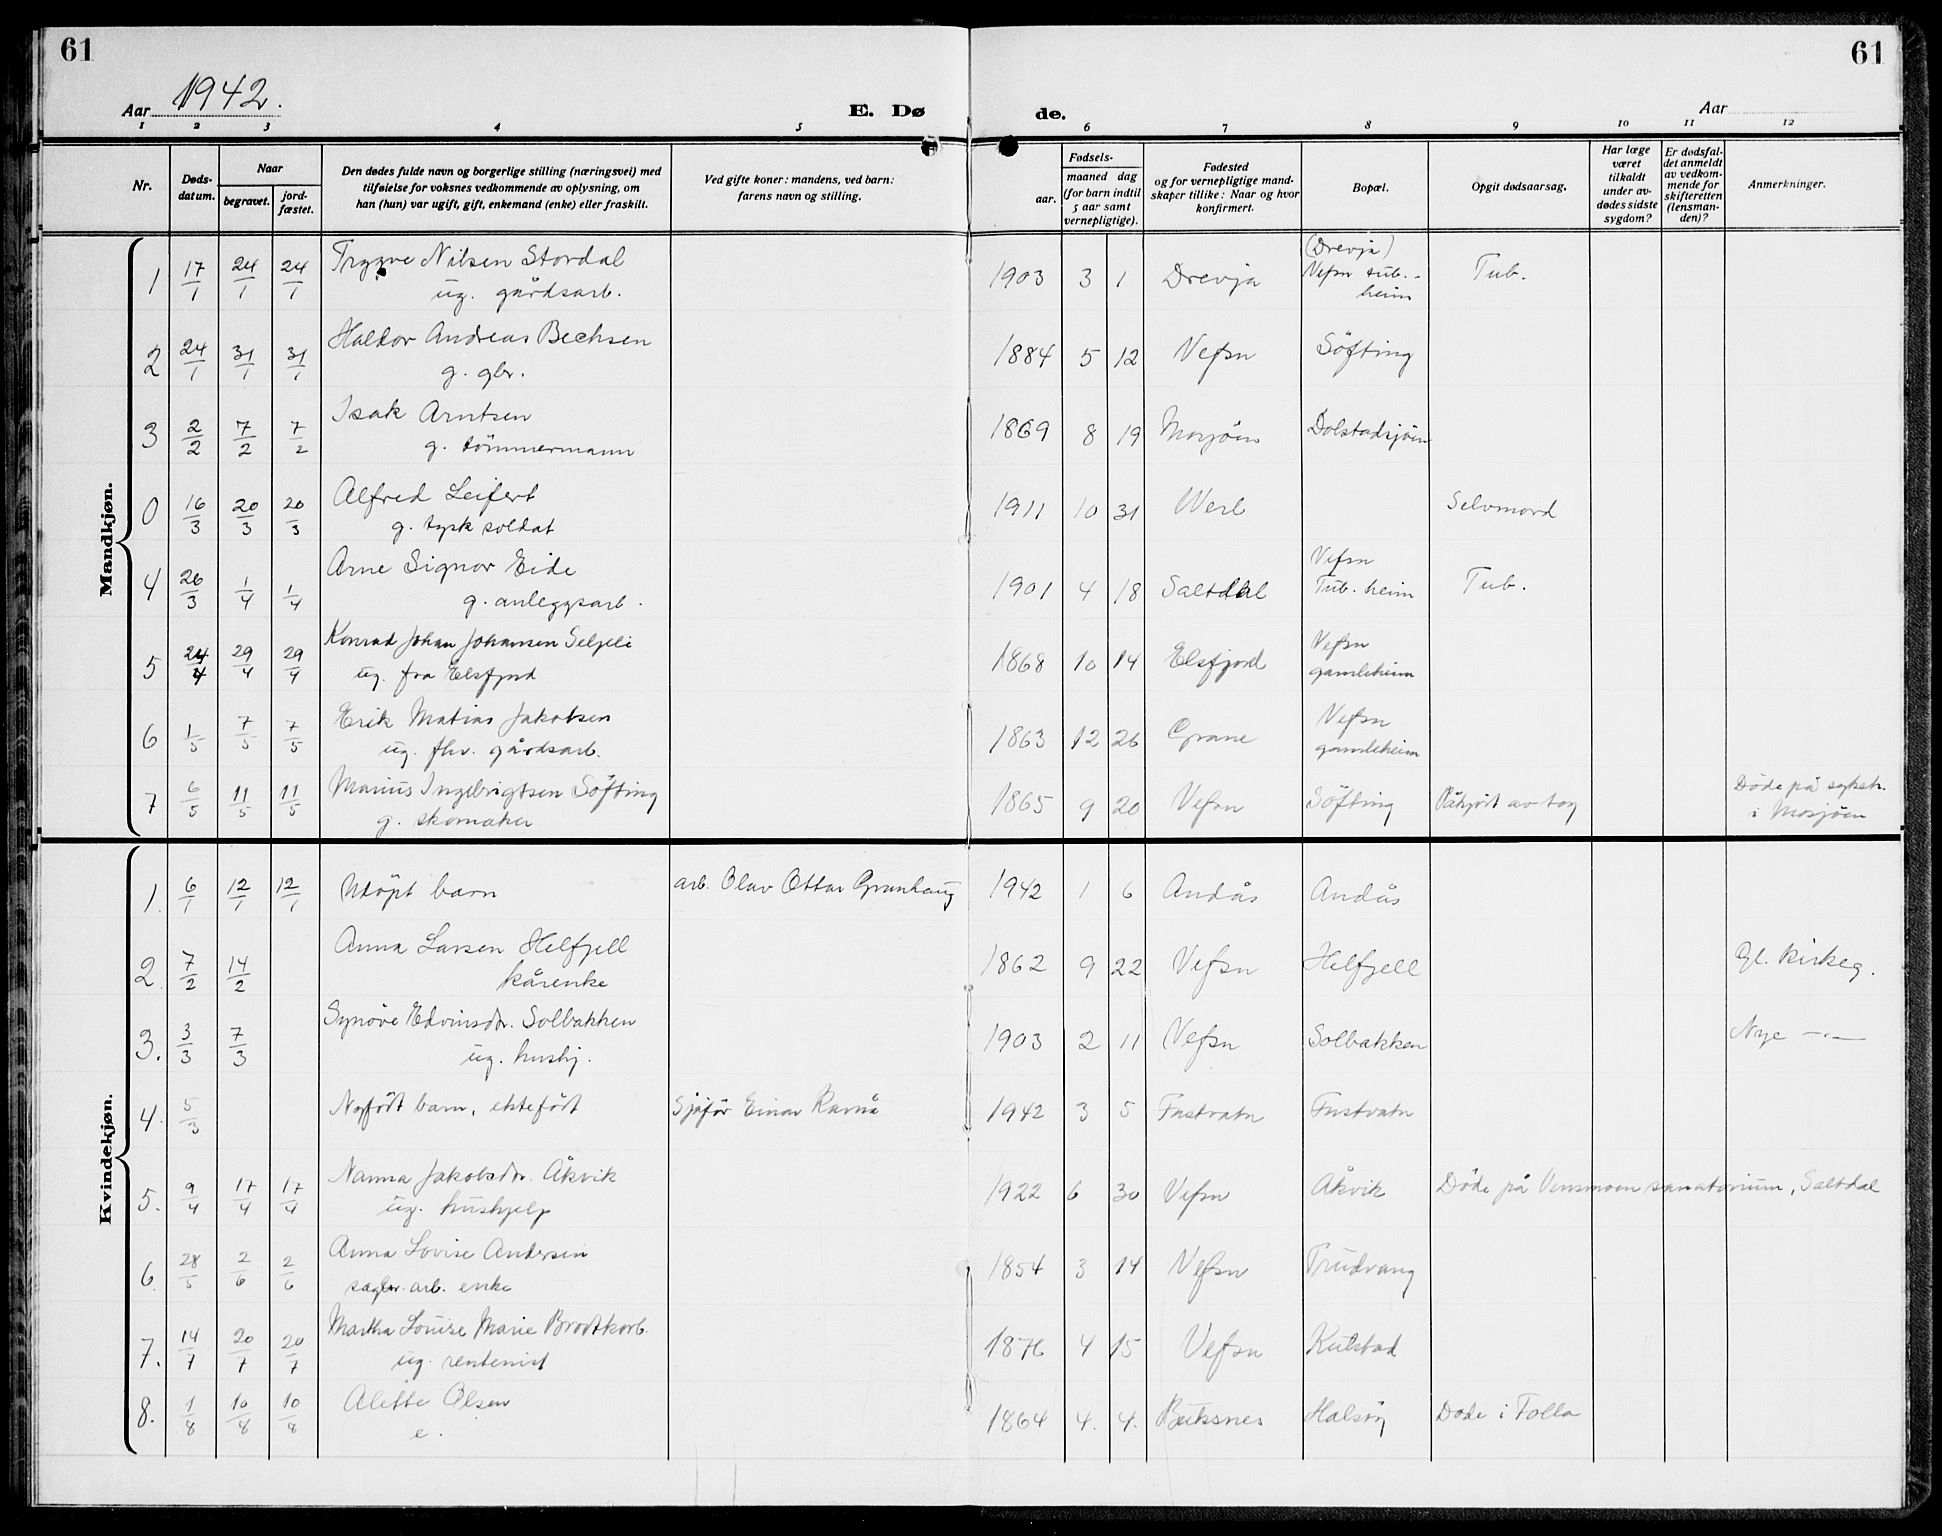 61
61
Aar 1942.
E. Dø
de.
Aar
1 2 3 4 5 6 7 8 9 10 11 12
Nr.
Døds-
datum.
Naar
begravet.
jord-
fæstet.
Den dødes fulde navn og borgerlige stilling (næringsvei) med
tilføielse for voksnes vedkommende av oplysning, om
han (hun) var ugift, gift, enkemand (enke) eller fraskilt.
Ved gifte koner: mandens, ved barn:
farens navn og stilling.
Fødsels-
aar.
maaned dag
(for barn indtil
5 aar samt
vernepligtige).
Fødested
og for vernepligtige mand-
skaper tillike: Naar og hvor
konfirmert.
Bopæl.
Opgit dødsaarsag.
Har læge
været
tilkaldt
under av-
dødes sidste
sygdom?
Er dødsfal-
det anmeldt
av vedkom-
mende for
skifteretten
(lensman-
den)?
Anmerkninger.
Mandkjøn.
1 17/1 24/1 24/1 Trygve Nilsen Stordal 1903 3 1 Drevja (Drevja) Tub.
ug. gårdsarb. Vefsn tub.-
heim
2 24/1 31/1 31/1 Haldor Andreas Bechsen 1884 5 12 Vefsn Söfting
g. gbr.
3 2/2 7/2 7/2 Isak Arntsen 1869 8 19 Mosjöen Dolstadsjöen
g. tömmermann
0 16/3 20/3 20/3 Alfred Leifert 1911 10 31 Werl Selvmord
g. tysk soldat
4 26/3 1/4 1/4 Arne Signor Eide 1901 4 18 Saltdal Vefsn Tub.
g. anleggsarb. Tub. heim
5 24/4 29/4 29/4 Konrad Johan Johansen Seljeli 1868 10 14 Elsfjord Vefsn
ug. fra Elsfjord gamleheim
6 1/5 7/5 7/5 Erik Matias Jakobsen 1863 12 26 Grane Vefsn
ug. fhv. gårdsarb. gamleheim
7 6/5 11/5 11/5 Marius Ingebrigtsen Söfting 1865 9 20 Vefsn Söfting Påkjört av tog Döde på sykeh.
g. skomaker i Mosjöen
Kvindekjøn.
1. 6/1 12/1 12/1 Udöpt barn arb. Olav Ottar Granhaug 1942 1 6 Andås Andås
2. 7/2 14/2 Anna Larsen Helfjell 1862 9 22 Vefsn Helfjell Gl. kirkeg.
kårenke
3. 3/3 7/3 Synöve Edvinsdr. Solbakken 1903 2 11 Vefsn Solbakken Nye -"-
ug. hushj.
4. 5/3 Nyfödt barn, ektefödt Sjåför Einar Ravnå 1942 3 5 Fustvatn Fustvatn
5. 9/4 17/4 17/4 Nanna Jakobsdr. Åkvik 1922 6 30 Vefsn Åkvik Döde på Vensmoen sanatorium, Saltdal
ug. hushjelp
6. 28/5 2/6 2/6 Anna Lovise Andersen 1854 3 14 Vefsn Trudvang
sagbr. arb. enke
7. 14/7 20/7 20/7 Martha Louise Marie Brodtkorb. 1876 4 15 Vefsn Kulstad
ug. rentenist
8. 1/8 10/8 10/8 Alette Olsen 1864 4. 4. Buksnes Halsöy Döde i Folla
e.